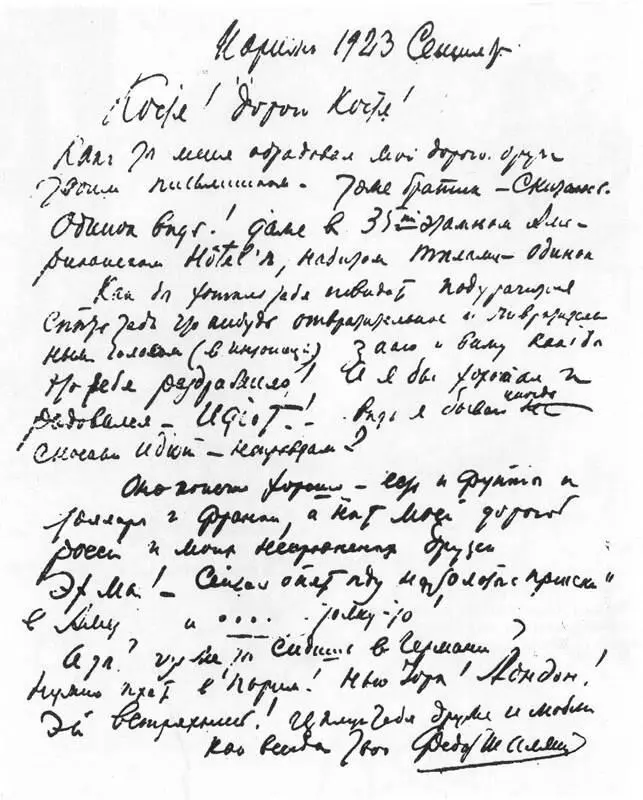 Париж 1923 Сентябр
Костя! Дорогой Костя!
Как ты меня обрадовал мой дорогой друг
твоим письмишком. Тоже братик – Скиталец.
Одинок ведь! даже в 35ти этажном
Hôtel'и, набитом – одинок
Как бы хотел тебя повидать подурачиться
Спеть тебе что нибудь отвратительное и
ным голосом (в интонации) Знаю и вижу как бы
тебя раздражило! И я бы хохотал и
радовался – Идіот! – Ведь я бываю иногда
Идіот – неправда ли?
Оно конечно хорошо – есть и фунты и
доллары и франки, а нет моей дорогой
россии и моих несравненных друзей
Эх ма! – Сейчас опять еду на золотые прииски"
в Амер и .... толку-то!
А ты? чего же ты сидишь в Германии?
Нужно ехать в Париж! Нью Йорк! Лондон!
Эй встряхнись! Целую тебя друже и люблю
как всегда твой Федор Шаляпин